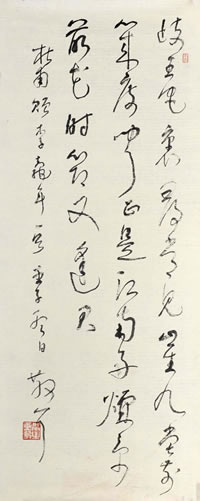 岐王宅裏尋常見崔九堂前
幾度聞正是江南好景
落花時節又逢君
杜甫李龜年一日